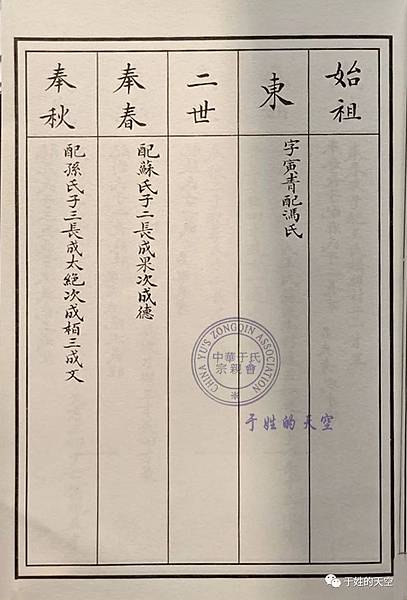 始祖
東
字寅青配馮氏
二世
奉春
配蘇氏子二長成果次成德
奉秋
配孫氏子三長成太絕次成栢三成文
CHINA YU'S ZONGQIN ASSOCIATION
中華于氏
宗親會
于姓的天空
于姓的天空